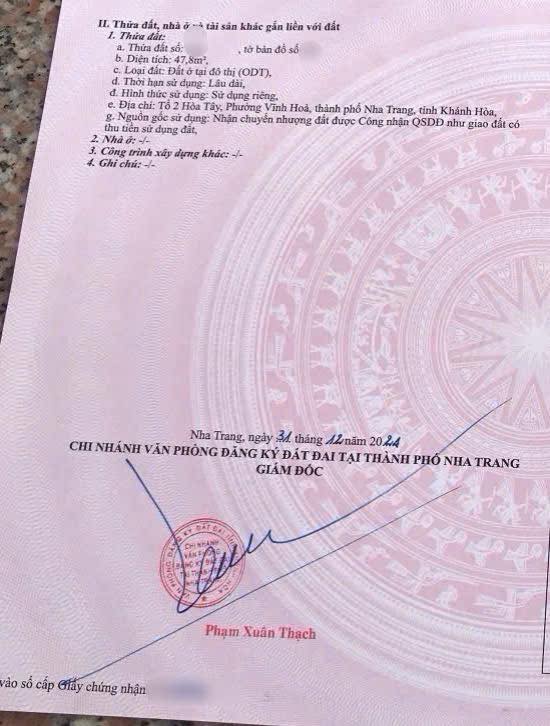 II. Thửa đất, nhà ở và tài sản khác gắn liền với đất
1. Thửa đất:
a. Thửa đất số: , tờ bản đồ số
b. Diện tích: 47,8m²,
c. Loại đất: Đất ở tại đô thị (ODT),
d. Thời hạn sử dụng: Lâu dài,
đ. Hình thức sử dụng: Sử dụng riêng,
e. Địa chỉ: Tổ 2 Hòa Tây, Phường Vĩnh Hoà, thành phố Nha Trang, tỉnh Khánh Hòa,
g. Nguồn gốc sử dụng: Nhận chuyển nhượng đất được Công nhận QSDĐ như giao đất có
thu tiền sử dụng đất,
2. Nhà ở: -/-
3. Công trình xây dựng khác: -/-
4. Ghi chú: -/-
Nha Trang, ngày 31 tháng 12 năm 2024
CHI NHÁNH VĂN PHÒNG ĐĂNG KÝ ĐẤT ĐAI TẠI THÀNH PHỐ NHA TRANG
GIÁM ĐỐC
CHI NHÁNH
VĂN PHÒNG
ĐĂNG KÝ ĐẤT
Phạm Xuân Thạch
vào sổ cấp Giấy chứng nhận